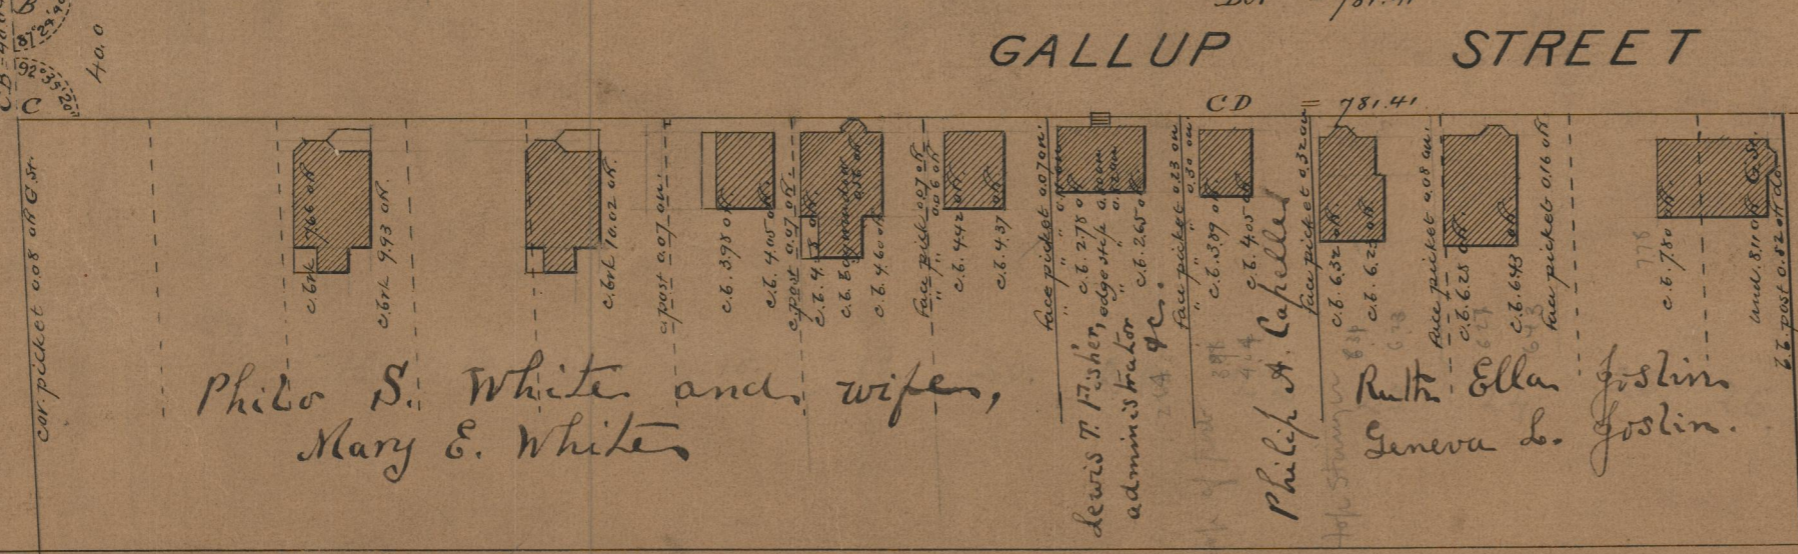 B
87° 29'
40.0
92° 39' 20"
C
GALLUP STREET
CD = 781.41
cor. picket 0.08 off G. St.
7.66 off
c. brk 9.93 off.
c. brk 10.02 off.
c. post 0.07 on.
c. b. 3.98 off
c. b. 4.05 off.
c. post 0.07 off.
c. b. 4.60 off
face pick 0.07 off
" " 0.06 off
c. b. 4.42 off.
c. b. 4.37 off
face picket 0.07 on.
c. b. 2.78 off
edge step
c. b. 2.65 off
face picket 0.23 on
" " 0.30 on.
c. b. 3.89 off
c. b. 4.05 off
face picket 0.32 on
c. b. 6.32 off.
c. b. 6.23 off
face picket 0.08 on.
c. b. 6.25 off.
c. b. 6.43 off
face picket 0.16 off
778
c. b. 7.80 off.
G. St.
post 0.82 off do.
Philo S. White and wife,
Mary E. White
Lewis T. Fisher,
administrator
&c.
Philip A. Capelle
Ruth Ella Joslin
Geneva L. Joslin.